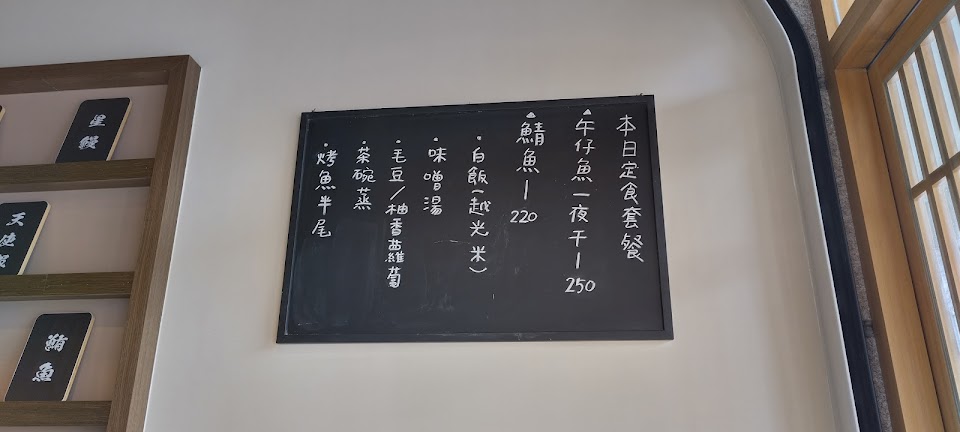 本日定食套餐
▲午仔魚一夜干-250
▲鯖魚-220
•白飯(越光米)
•味噌湯
•毛豆/柚香蘿蔔
•茶碗蒸
•烤魚半尾
星鰻
天使
鮪魚